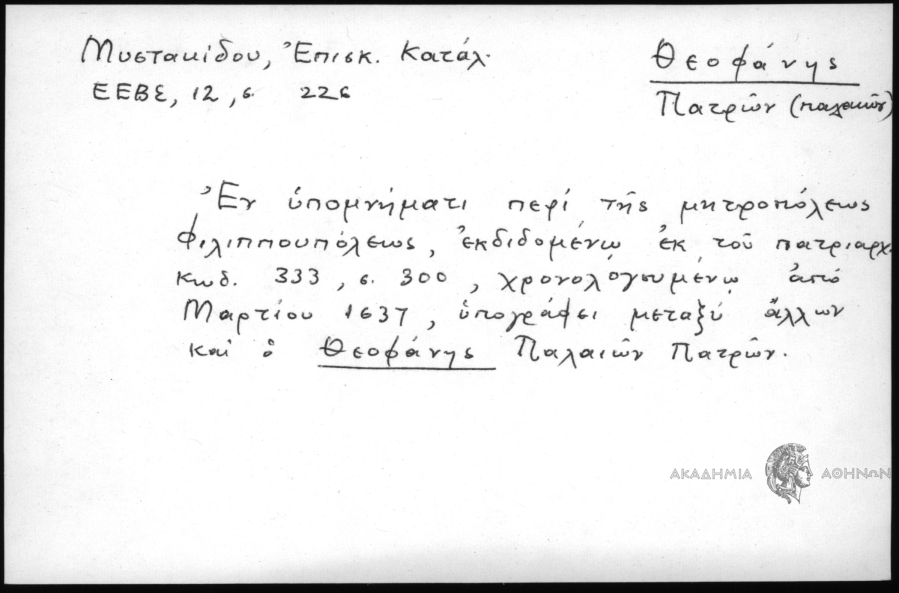 Μυστακίδου, Ἐπισκ. Κατάλ.
ΕΕΒΣ, 12, σ. 226
Θεοφάνης
Πατρῶν (παλαιῶν)
Ἐν ὑπομνήματι περί τῆς μητροπόλεως
Φιλιππουπόλεως, ἐκδιδομένῳ ἐκ τοῦ πατριαρχ.
κωδ. 333, σ. 300, χρονολογουμένῳ ἀπό
Μαρτίου 1637, ὑπογράφει μεταξύ ἄλλων
καί ὁ Θεοφάνης Παλαιῶν Πατρῶν.
ΑΚΑΔΗΜΙΑ ΑΘΗΝΩΝ